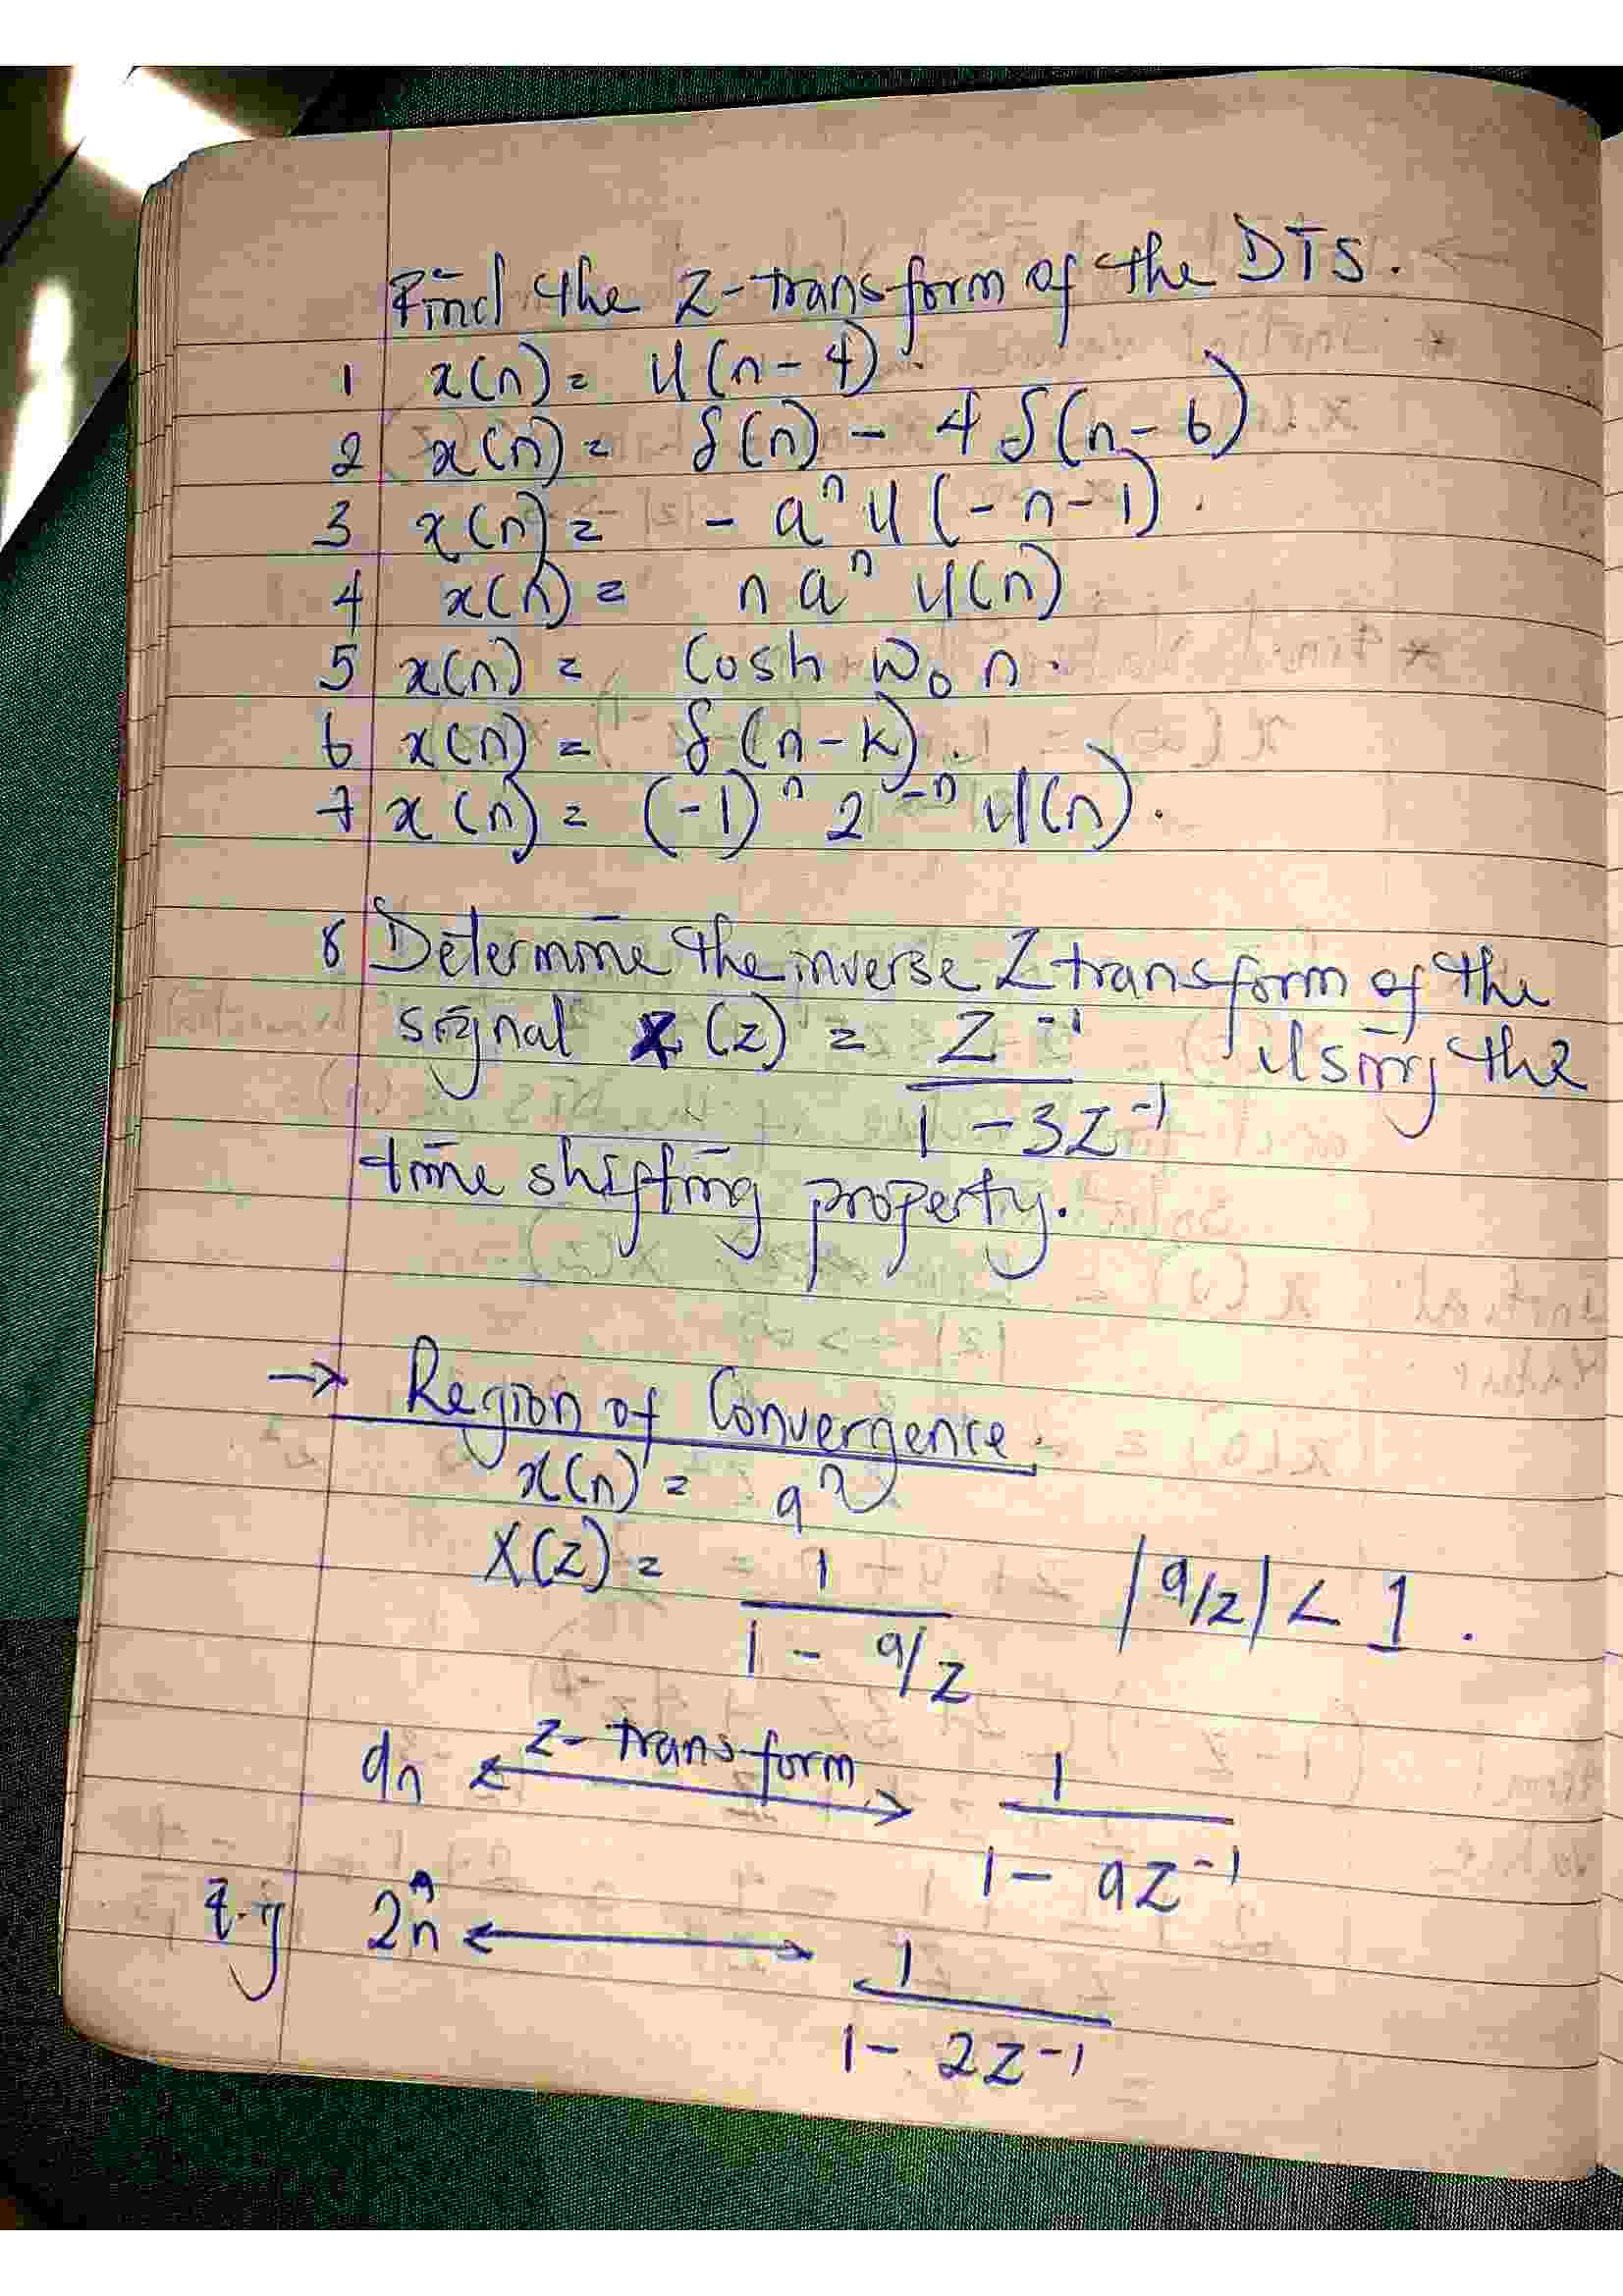 Find the Z-transform of the DTS.
1 x(n) = u(n-4).
2 x(n) = δ(n) - 4 δ(n-6)
3 x(n) = - aⁿ u(-n-1).
4 x(n) = n aⁿ u(n).
5 x(n) = Cosh ω₀ n.
6 x(n) = δ(n-k).
7 x(n) = (-1)ⁿ 2⁻ⁿ u(n).
8 Determine the inverse Z transform of the
signal X(z) = Z⁻¹ / 1 - 3Z⁻¹ Using the
time shifting property.
→ Region of Convergence.
x(n) = aⁿ
X(z) = 1 / 1 - a/z |a/z| < 1.
an ⟷ Z-transform 1 / 1 - aZ⁻¹
E.g 2ⁿ ⟷ 1 / 1 - 2Z⁻¹